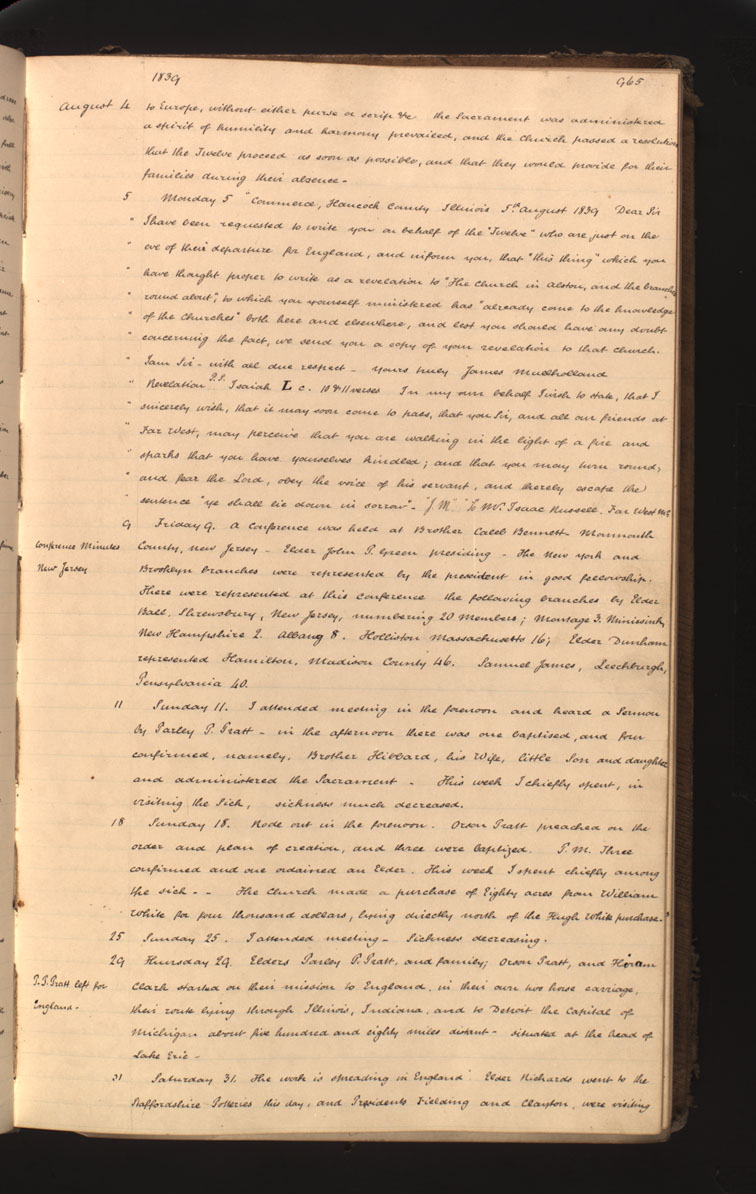 1839 965
August 4 to Europe, without either purse or scrip &c the Sacrament was administered
a spirit of humility and harmony prevailed, and the Church passed a resolution
that the Twelve proceed as soon as possible, and that they would provide for their
families during their absence -
5 Monday 5 "Commerce, Hancock County Illinois 5th August 1839 Dear Sir
" I have been requested to write you on behalf of the "Twelve" who are just on the
" eve of their departure for England, and inform you, that "this thing" which you
" have thought proper to write as a revelation to "The Church in Alston, and the branches
" round about", to which you yourself ministered has "already come to the knowledge
" of the Churches" both here and elsewhere, and lest you should have any doubt
" concerning the fact, we send you a copy of your revelation to that church.
" I am Sir - with all due respect - yours truly James Mulholland
" Revelation P.S. Isaiah L c. 10 & 11 verses In my own behalf I wish to state, that I
" sincerely wish, that it may soon come to pass, that you Sir, and all our friends at
" Far West, may perceive that you are walking in the light of a fire and
" sparks that you have yourselves kindled; and that you may turn round,
" and fear the Lord, obey the voice of his servant, and thereby escape the
" sentence "ye shall lie down in sorrow" - "J M" To Mr. Isaac Russell. Far West Mo.
9 Friday 9. A Conference was held at Brother Caleb Bennett Monmouth
Conference Minutes County, New Jersey - Elder John P. Green presiding - The New York and
New Jersey Brooklyn branches were represented by the president in good fellowship.
There were represented at this conference the following branches by Elder
Ball. Shrewsbury, New Jersey, numbering 20 Members; Montage 3. Minissink,
New Hampshire 2. Albany 8. Holliston Massachusetts 16; Elder Dunham
represented Hamilton, Madison County 46. Samuel James, Leechburgh,
Pensylvania 40.
11 Sunday 11. I attended meeting in the forenoon and heard a Sermon
by Parley P. Pratt - in the afternoon there was one baptised, and four
confirmed, namely, Brother Hibbard, his Wife, little Son and daughter
and administered the Sacrament - This week I chiefly spent, in
visiting the Sick, sickness much decreased.
18 Sunday 18. Rode out in the forenoon. Orson Pratt preached on the
order and plan of creation, and three were baptized. P.M. Three
confirmed and one ordained an Elder. This week I spent chiefly among
the sick - - The Church made a purchase of Eighty acres from William
White for four thousand dollars, lying directly north of the Hugh White purchase.
25 Sunday 25. I attended meeting - Sickness decreasing.
29 Thursday 29. Elders Parley P. Pratt, and family; Orson Pratt, and Hiram
P.P. Pratt left for Clark started on their mission to England, in their own two horse carriage,
England - their route lying through Illinois, Indiana, and to Detroit the Capital of
Michigan about five hundred and eighty miles distant - situated at the head of
Lake Erie -
31 Saturday 31. The work is spreading in England Elder Richards went to the
Staffordshire Potteries this day, and Presidents Fielding and Clayton, were visiting